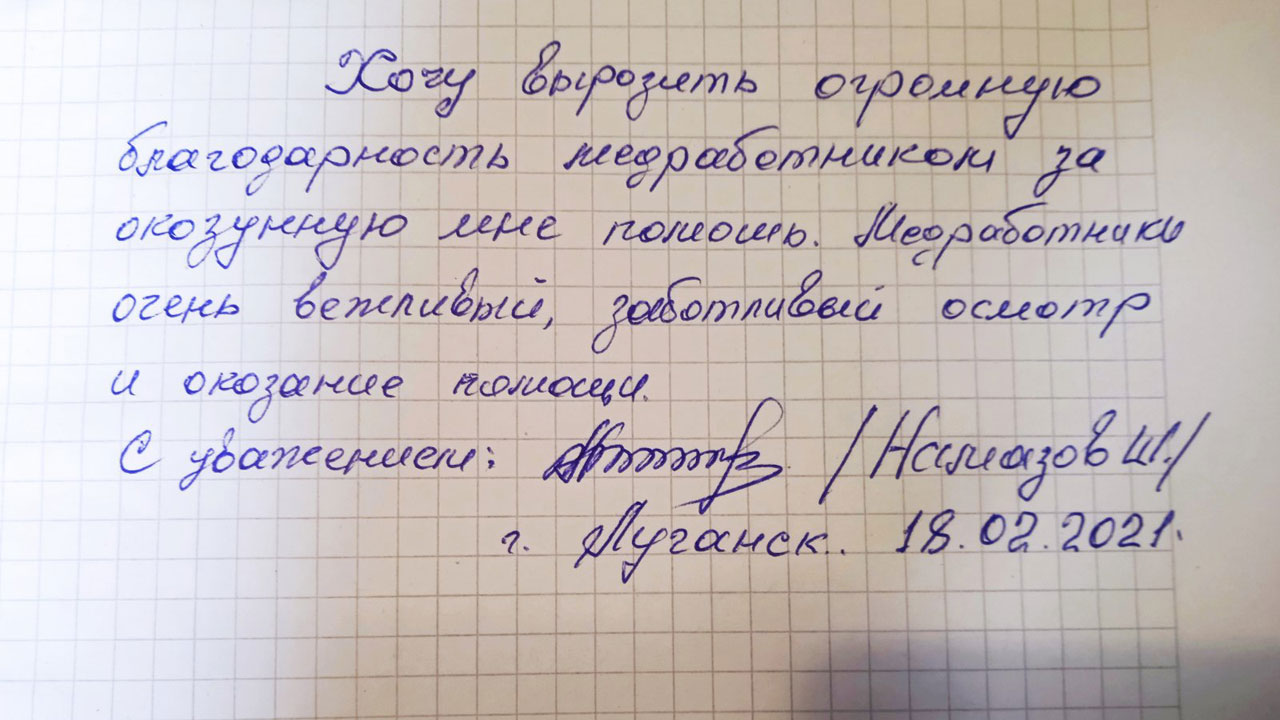 Хочу вырозить огромную
благодарность медработником за
окозунную мне помошь. Медработники
очень вежливый, заботливый осмотр
и окозание помощи.
С уважением: /Намазов Ш./
г. Луганск. 18.02.2021.